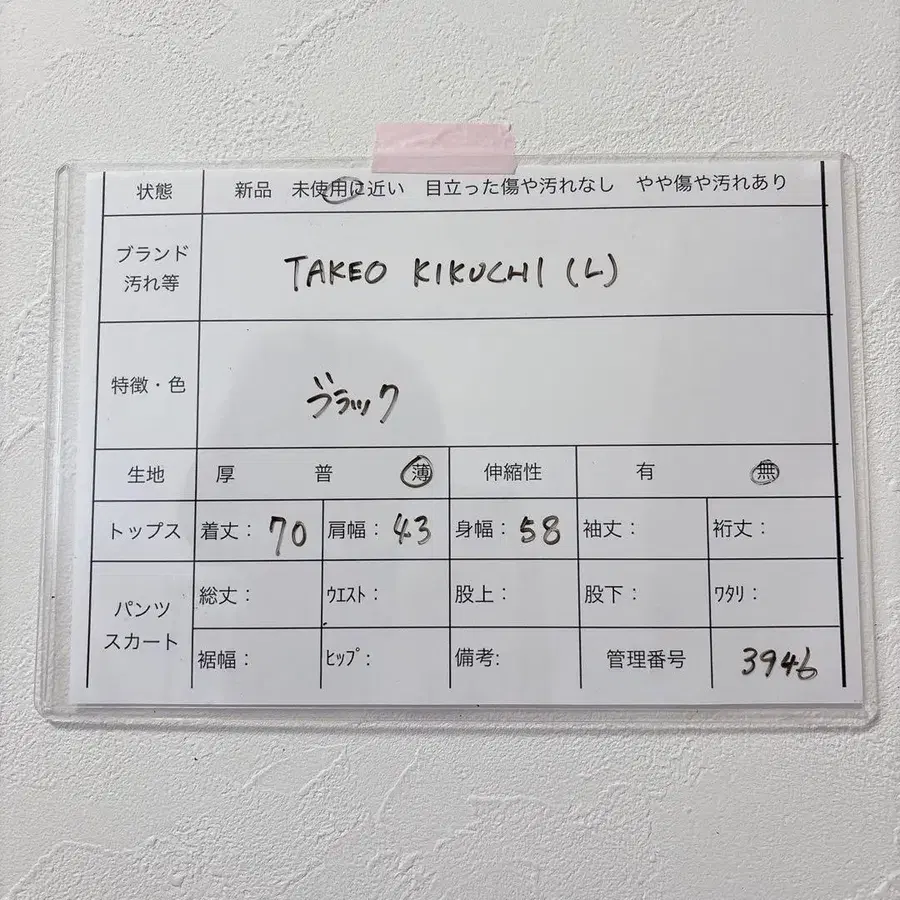 状態 新品 未使用に近い 目立った傷や汚れなし やや傷や汚れあり
ブランド
汚れ等
TAKEO KIKUCHI (L)
特徴・色
ブラック
生地 厚 普 薄 伸縮性 有 無
トップス 着丈: 70 肩幅: 43 身幅: 58 袖丈: 裄丈:
パンツ
スカート
総丈: ウエスト: 股上: 股下: ワタリ:
裾幅: ヒップ: 備考: 管理番号 3946